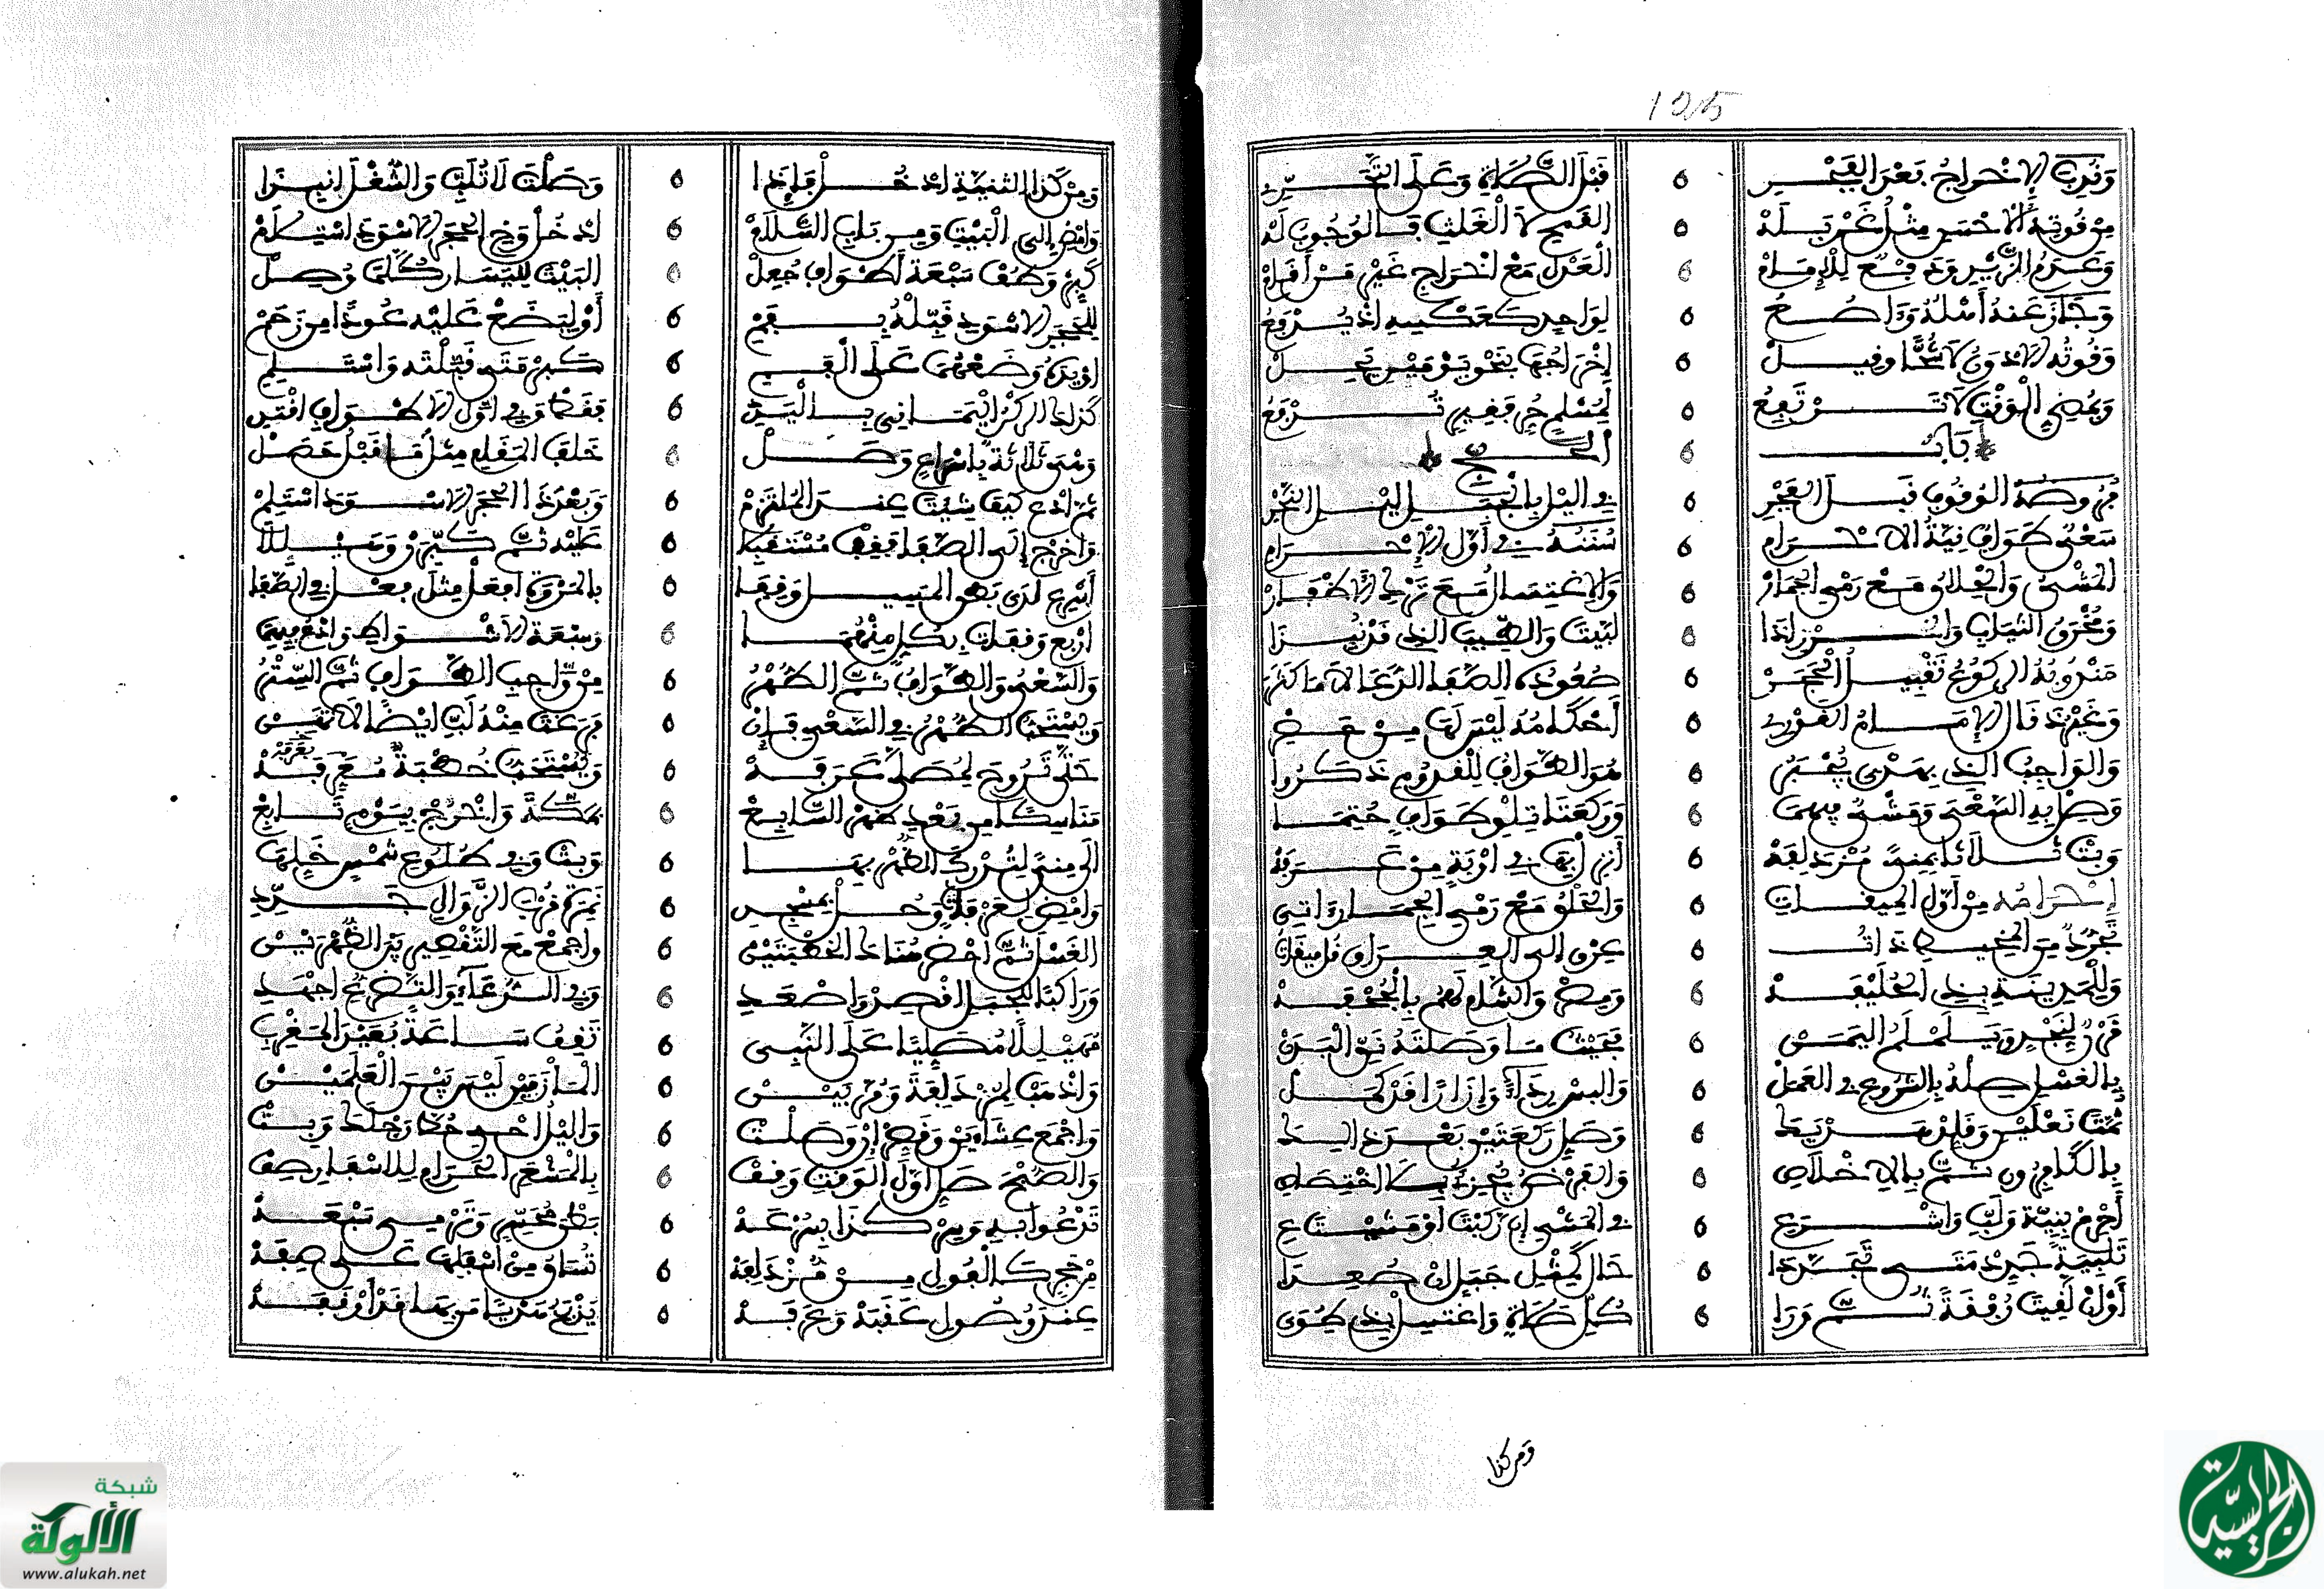 125
وندب الاخراج بعد الفجر قبل الصلاة وعلى التحري
من قوته الاحسن مثل غربله القمح لا الغلث فالوجوب له
وعدم الزيد ودفع للامام العدل مع اخراج غير من أقام
وجاز عنه أهله وأصع لواحد كعكسه اذ يرفع
وقوته الادون لا شحا وقيل إخراجها بنحو يومين يحل
وبمضي الوقت لا ترتفع لمسلم حر فقير ترفع
باب الحج
فروضه الوقوف قبل الفجر في اليل بالجبل ليل النحر
سعي طواف نية الاحرام سننه في أول الاحرام
المشي والحلاق مع رمي الجمار والاغتسال مع ترك الاظفار
الثياب لبيت والطيب الذي
مندوبه الركوع تقبيل الحجر صعوده الصفا الدعا
وغيره قال الامام أحكامه ليس لها من
والواجب الذي بهدي يجبر هو الطواف للقدوم ذكروا
وصل به السعي ومشي فيهما وركعتا تلو طواف حتما
وبت ثلاثا بمنى مزدلفه انزل بها في اوبة من عرفه
إحرامه من أول الميقات والحلق مع رمي الجمار واتي
تجرد من المخيط ذات عرق الى العراق قل ميقات
وللمدينة بذي الحليفه ومصر والشام لهم بالجحفه
قرن لنجد ويلملم اليمن فحيث ما وصلته نق البدن
بالغسل صله بالشروع في العمل والبس رداء وإزارا قد كمل
ثمت نعلين وقلد وصل ركعتين بعد
بالكافرون ثم بالاخلاص والفرض يجزئ بلا اختصاص
أحرم بنية ولب واشرع في المشي ان ركبت او
تلبية جدد متى تجددا حال كمثل جبل ان صعدا
أو إن لقيت رفقة ثم ورا كل صلاة واغتسل بذي طوى
ومن كدا
ومن كدا الثنية ادخل فإذا وصلت لا تلب والشغل انبذا
وامض الى البيت ومن باب السلام ادخل وفي الحجر الاسود استلام
كبر وطف سبعة أطواف جعل البيت لليسار كلما وصل
للحجر الاسود قبله بفم أو ليضع عليه عودا من زحم
او يده وضعهما على الفم كبر متى قبلته واستلم
كذا الركن اليماني باليد فقط وفي اول الاطواف اقتد
ومشي ثلاثة باسراع وصل خلف المقام مثل ما قبل حصل
ثم ادع كيف شيت عند الملتزم وبعد ذا الحجر الاسود استلم
واخرج الى الصفا فقف مستقبلا عليه ثم كبرن وهللا
أسرع لدى بطن المسيل وقفا بالمروة افعل مثل فعل في الصفا
اربع وقفات بكل منهما وسبعة الاشواط وادع فيهما
والسعي والطواف ثم الطهر من واجب الطواف ثم الستر
ويستحب الطهر في السعي فإن فرغت منه لب ايضا
حتى تروح لمصلى عرفه ويستحب خطبة معرفه
مناسكا من بعد ظهر السابع بمكة واخرج بيوم تابع
الى منى لتدرك الظهر بها وبت وفي طلوع شمس خلها
وامض لعرفات وحل بمسجد نمرة قرب الزوال جدد
الغسل ثم احضر هناك الخطبتين واجمع مع التقصير بين الظهرين
وراكبا للجبل اقصد واصعد وفي الدعاء والتضرع اجهد
مهللا مصليا على النبي تقف ساعة بعيد المغرب
واذهب لمزدلفة ومر بين المأزمين ليس بين العلمين
واجمع عشاءين وقصر إن وصلت واليل احي حط رحلك وبت
والصبح صل اول الوقت وقف بالمشعر الحرام للاسفار صف
تدعوا به وسر كذا بسرعه بطن محسر وترمي سبعه
من حجر كالفول من مزدلفه تساق من اسفلها على صفه
عند وصول عقبة وعرفه يذبح هديا من بها قد أوقفه
شبكة الألوكة
www.alukah.net